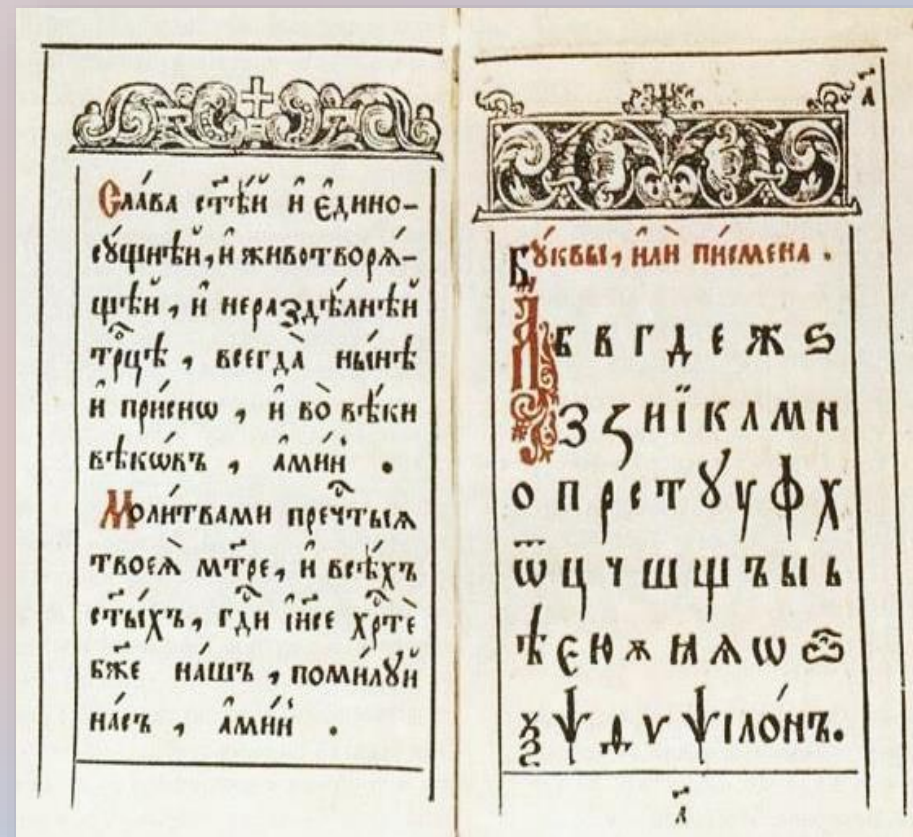 Сла́ва ст҃ѣ́й и҆ є҆дино-
сꙋ́щнѣй, и҆ животворѧ́-
щѣй , и҆ нераздѣ́лнѣй
трⷪ҇цѣ , всегда̀ ны́нѣ
и҆ при́снѡ , и҆ во̀ вѣ́ки
вѣкѡ́въ , а҆ми́нь .
Моли́твами пречⷭ҇тыѧ
твоеѧ̀ мт҃ре, и҆ всѣ́хъ
ст҃ы́хъ, гдⷭ҇и і҆и҃се хрⷭ҇тѐ
бж҃е на́шъ , поми́лꙋй
на́съ , а҆ми́нь .
а҃
Бꙋ́квы, и҆лѝ пи́смена .
А б в г д е ж ѕ
З ꙁ и ї к л м н
о п р с т ꙋ у ф х
ѿ ц ч ш щ ъ ы ь
ѣ є ю ѫ ꙗ ѧ ѡ ѽ
ѯ ѱ д ѵ ѱіло́нъ.
а҃